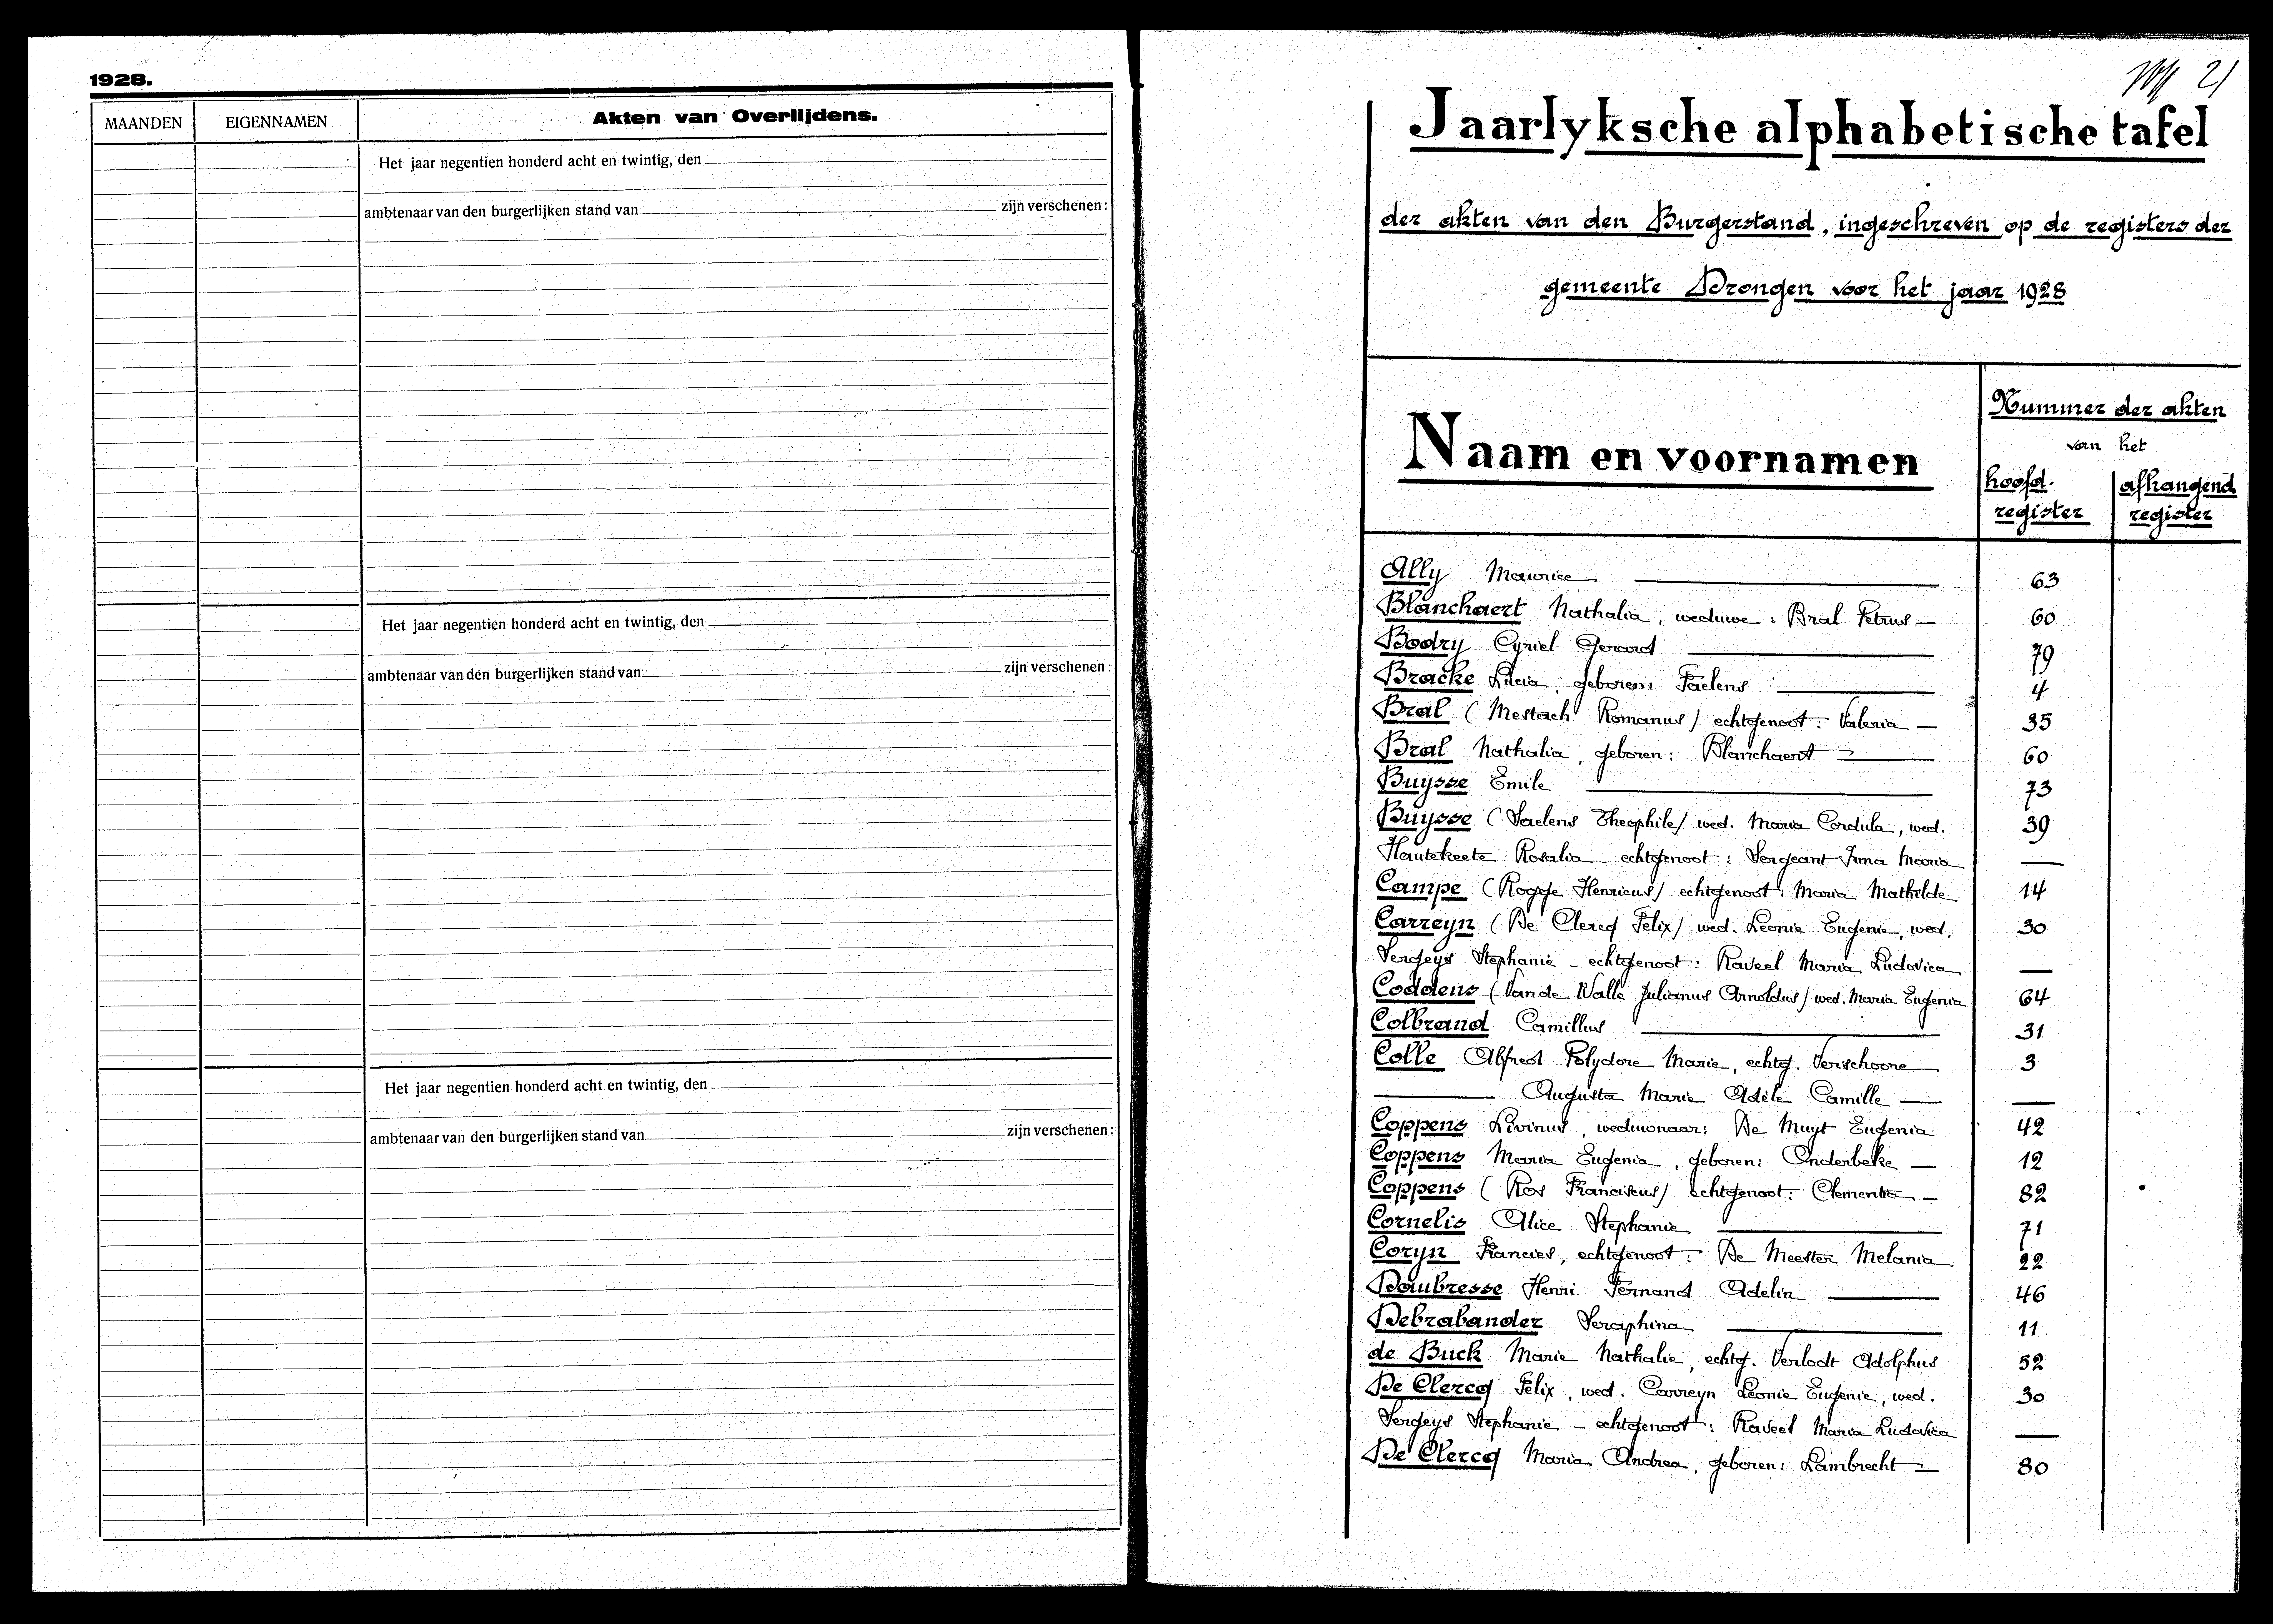 1928.
MAANDEN EIGENNAMEN Akten van Overlijdens.
Het jaar negentien honderd acht en twintig, den
ambtenaar van den burgerlijken stand van zijn verschenen:
Het jaar negentien honderd acht en twintig, den
ambtenaar van den burgerlijken stand van zijn verschenen:
Het jaar negentien honderd acht en twintig, den
ambtenaar van den burgerlijken stand van zijn verschenen:
21
Jaarlyksche alphabetische tafel
der akten van den Burgerstand, ingeschreven op de registers der
gemeente Drongen voor het jaar 1928
Naam en voornamen
Nummer der akten
van het
hoofd. register
afhangend register
Ally Maurice 63
Blanchaert Nathalia, weduwe: Bral Petrus — 60
Bodry Cyriel Gerard 79
Bracke Lucia, geboren: Faelens 4
Bral (Mestach Romanus) echtgenoot: Valeria — 35
Bral Nathalia, geboren: Blanchaert 60
Buysse Emile 73
Buysse (Saelens Theophile) wed. Maria Cordula, wed. 39
Hautekeete Rosalia - echtgenoot: Sergeant Irma Maria —
Campe (Rogge Henricus) echtgenoot: Maria Mathilde 14
Carreyn (De Clercq Felix) wed. Leonie Eugenie, wed. 30
Sergeys Stephanie - echtgenoot: Raveel Maria Ludovica —
Coddens (Van de Walle Julianus Arnoldus) wed. Maria Eugenia 64
Colbrand Camillus 31
Colle Alfred Polydore Marie, echtg. Verschoore 3
— Augusta Marie Adèle Camille — —
Coppens Livinus, weduwnaar: De Muyt Eugenia 42
Coppens Maria Eugenia, geboren: Onderbeke — 12
Coppens (Ros Franciscus) echtgenoot: Clementia — 82
Cornelis Alice Stephanie 71
Coryn Francies, echtgenoot: De Meester Melania 22
Dombresse Henri Fernand Adelin 46
Debrabander Seraphina 11
de Buck Marie Nathalie, echtg. Verlodt Adolphus 52
De Clercq Felix, wed. Carreyn Leonie Eugenie, wed. 30
Sergeys Stephanie - echtgenoot: Raveel Maria Ludovica —
De Clercq Maria Andrea, geboren: Lambrecht — 80